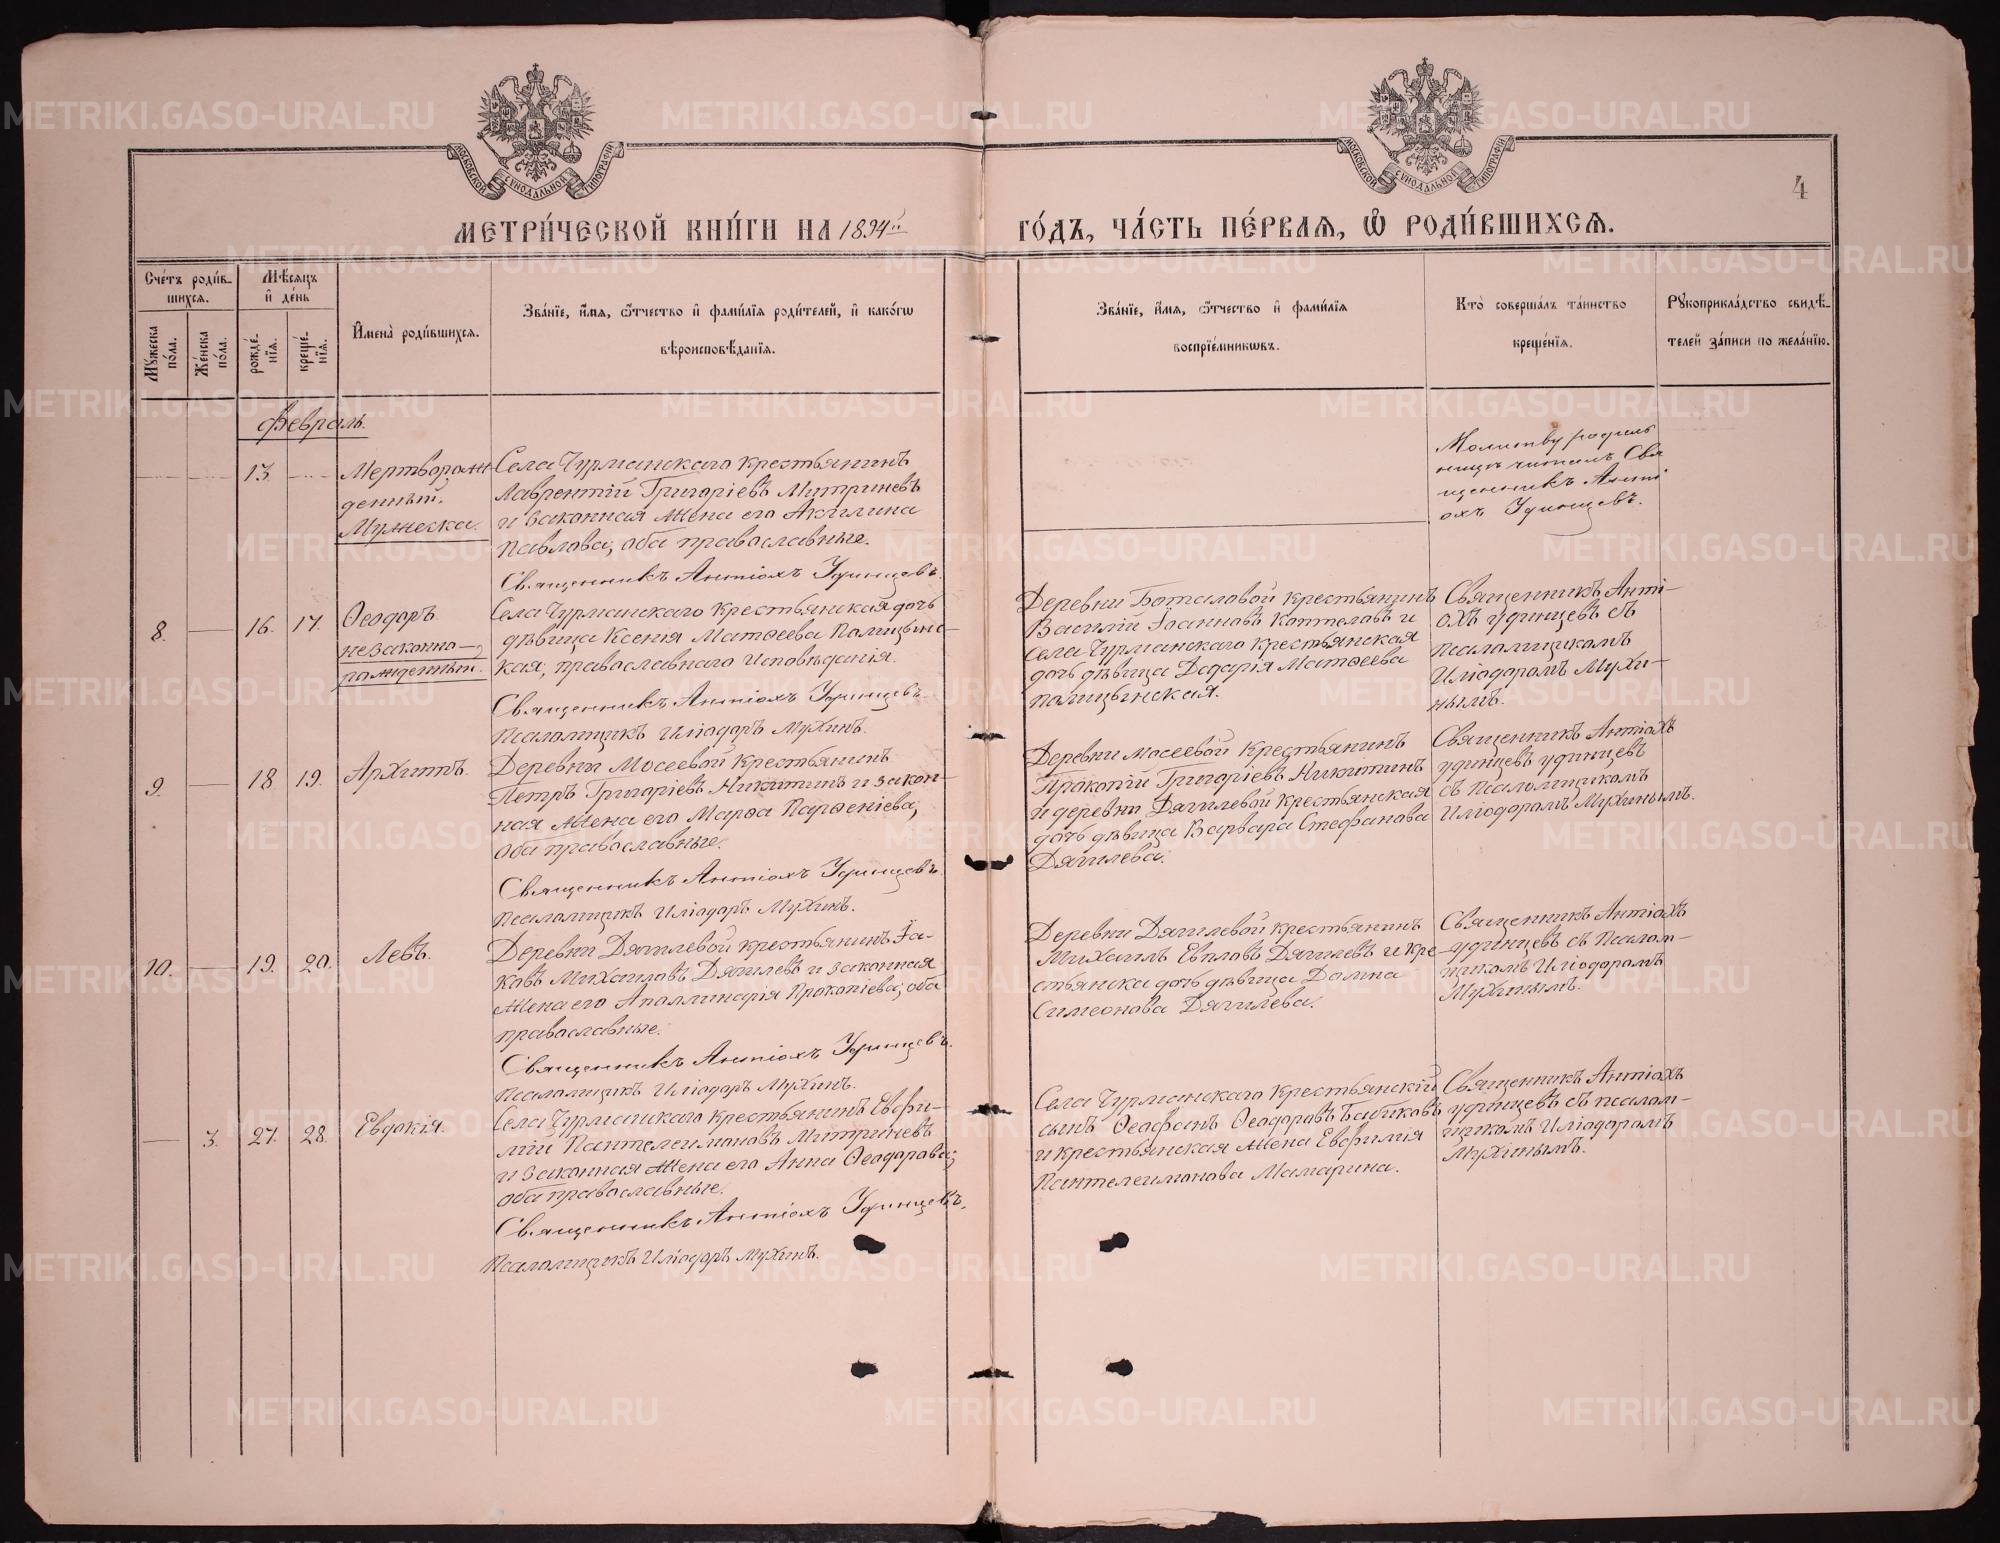 МОСКОВСКОЙ СУНОДАЛЬНОЙ ТИПОГРАФІИ
МОСКОВСКОЙ СУНОДАЛЬНОЙ ТИПОГРАФІИ
4
МЕТРИ́ЧЕСКОЙ КНИ́ГИ НА 1894й
ГО́ДЪ, ЧА́СТЬ ПЕ́РВАѦ, Ѡ҆ РОДИ́ВШИХСѦ.
Сче́тъ роди́в-
шихсѧ.
Мѣ́сѧцъ
и҆ де́нь
Мꙋ́жеска
по́ла.
Же́нска
по́ла.
рожде́-
нїѧ.
креще́-
нїѧ.
И҆мена̀ роди́вшихсѧ.
Зва́нїе, и҆́мѧ, ѻ҆́тчество и҆ фами́лїѧ роди́телей, и҆ како́гѡ
вѣроисповѣ́данїѧ.
Зва́нїе, и҆́мѧ, ѻ҆́тчество и҆ фами́лїѧ
воспрїе́мникѡвъ.
Кто̀ соверша́лъ та́инство
креще́нїѧ.
Рꙋкоприкла́дство свидѣ́-
телей за́писи по жела́нїю.
Февраль.
13.
Мертворож-
денный.
Мужеска.
Села Чурманскаго крестьянинъ
Лаврентій Григоріевъ Митриневъ
и законная жена его Акилина
Павлова, оба православные.
Священникъ Антіохъ Удинцевъ.
Молитву родиль
ницѣ читалъ Свя
щенникъ Анті
охъ Удинцевъ.
8. — 16. 17.
Ѳеодоръ.
незаконно-
рожденный.
Села Чурманскаго крестьянская дочь
дѣвица Ксенія Матѳеева Палицын-
ская, православнаго исповѣданія.
Священникъ Антіохъ Удинцевъ.
Псаломщикъ Иліодоръ Мухинъ.
Деревни Боталовой крестьянинъ
Василій Іоанновъ Коптеловъ и
села Чурманскаго крестьянская
дочь дѣвица Дарія Матѳеева
Палицынская.
Священникъ Анті-
охъ Удинцевъ съ
псаломщикомъ
Иліодоромъ Мухи-
нымъ.
9. — 18 19.
Архиппъ.
Деревни Мосеевой крестьянинъ
Петръ Григоріевъ Никитинъ и закон-
ная жена его Марѳа Парѳеніева,
оба православные.
Священникъ Антіохъ Удинцевъ.
Псаломщикъ Иліодоръ Мухинъ.
Деревни Мосеевой крестьянинъ
Прокопій Григоріевъ Никитинъ
и деревни Дягилевой крестьянская
дочь дѣвица Варвара Стефанова
Дягилева.
Священникъ Антіохъ
Удинцевъ Удинцевъ
съ псаломщикомъ
Иліодоромъ Мухинымъ.
10. — 19. 20.
Левъ.
Деревни Дягилевой крестьянинъ Іа-
ковъ Михаиловъ Дягилевъ и законная
жена его Аполлинарія Прокопіева, оба
православные.
Священникъ Антіохъ Удинцевъ.
Псаломщикъ Иліодоръ Мухинъ.
Деревни Дягилевой крестьянинъ
Михаилъ Евпловъ Дягилевъ и кре
стьянска дочь дѣвица Домна
Симеонова Дягилева.
Священникъ Антіохъ
Удинцевъ съ псалом-
щикомъ Иліодоромъ
Мухинымъ.
— 3. 27. 28.
Евдокія.
Села Чурманскаго крестьянинъ Евфи-
мій Пантелеимоновъ Митриневъ
и законная жена его Анна Ѳеодорова,
оба православные.
Священникъ Антіохъ Удинцевъ.
Псаломщикъ Иліодоръ Мухинъ.
Села Чурманскаго крестьянскій
сынъ Ѳеофанъ Ѳеодоровъ Бабиковъ
и крестьянская жена Евфимія
Пантелеимонова Мамарина.
Священникъ Антіохъ
Удинцевъ съ псалом-
щикомъ Иліодоромъ
Мухинымъ.
METRIKI.GASO-URAL.RU